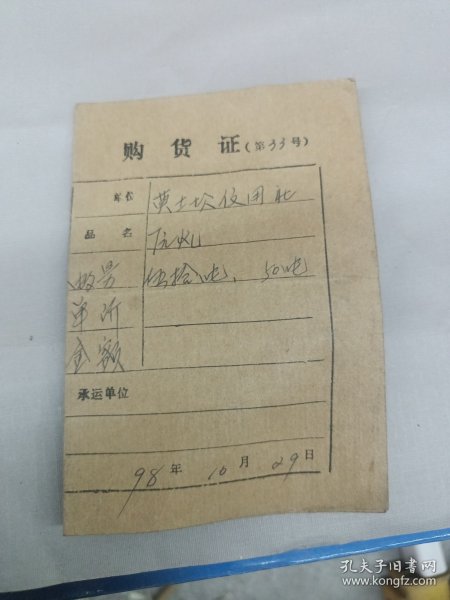 购货证(第33号)
单位 黄土坎信用社
品名
数另 伍拾吨、50吨
单价
金额
承运单位
98年10月29日
孔夫子旧书网
www.kongfz.com